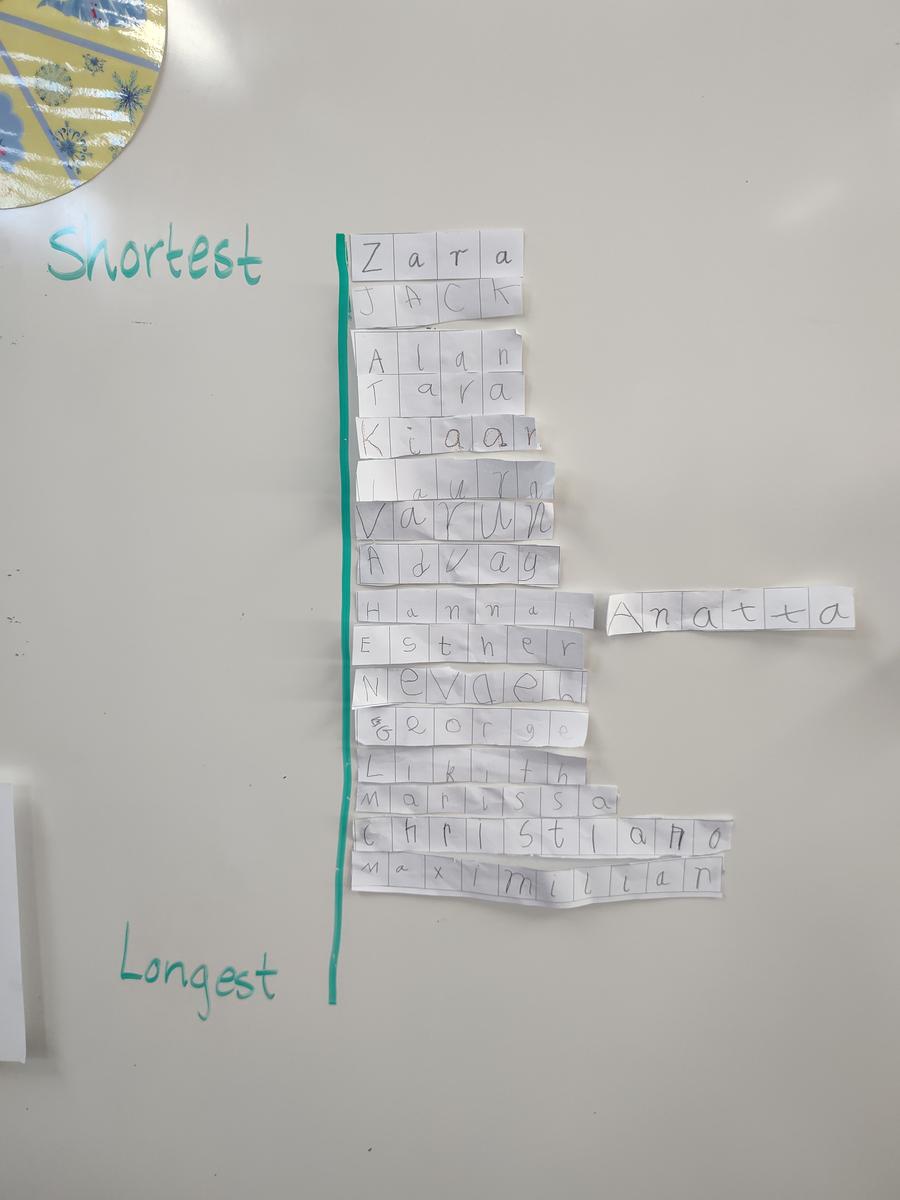 Shortest
Zara
JACK
Alan
Tara
Kiaan
Laura
Varun
Advay
Hannah Anatta
Esther
Nevaeh
George
Likith
Marissa
Christiano
Maximilian
Longest